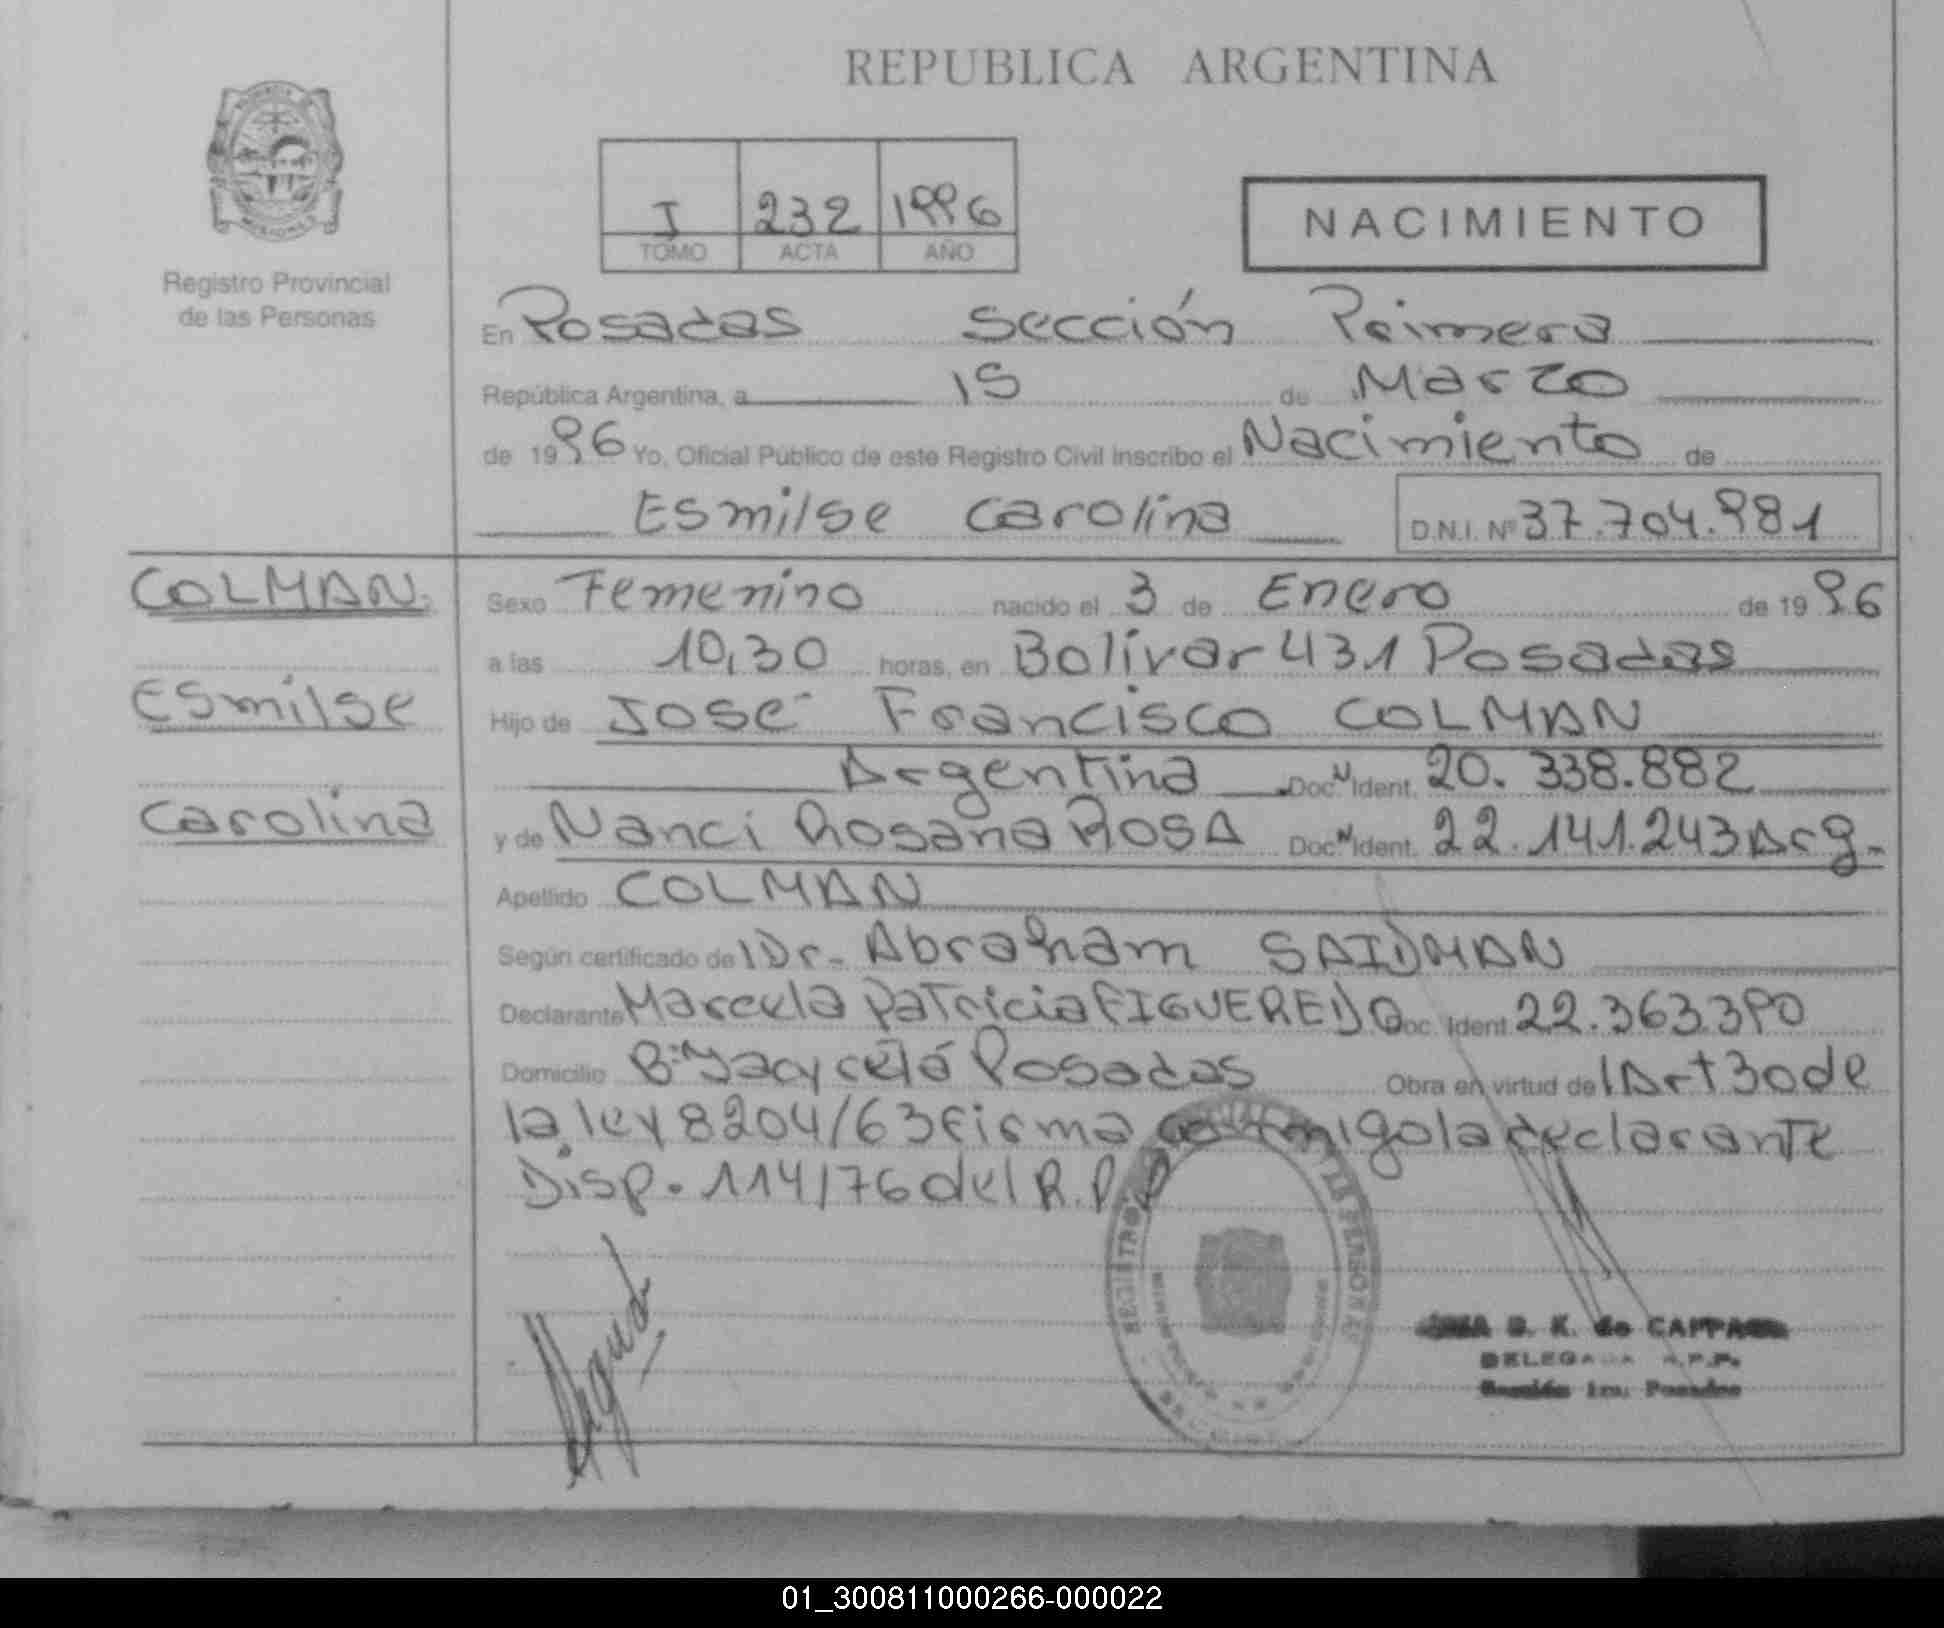 REPUBLICA ARGENTINA
I 232 1996
TOMO ACTA AÑO
NACIMIENTO
Registro Provincial
de las Personas
En Posadas Sección Primera
República Argentina, a 15 de Marzo
de 1996 Yo, Oficial Público de este Registro Civil inscribo el Nacimiento de
Esmilse Carolina D.N.I. Nº 37.704.981
COLMAN. Sexo Femenino nacido el 3 de Enero de 1996
a las 10,30 horas, en Bolívar 431 Posadas
Esmilse Hijo de José Francisco COLMAN
Argentina Doc. N Ident. 20.338.882
Carolina y de Nanci Rosana ROSA Doc. N Ident. 22.141.243 Arg.
Apellido COLMAN
Según certificado de l Dr. Abraham SAIDMAN
Declarante Marcela Patricia FIGUEREDO Doc. Ident. 22.363.390
Domicilio Bº Yacyretá Posadas Obra en virtud de l Art 30 de
la ley 8204/63 firma conmigo la declarante
Disp. 114/76 del R.P.P
REGISTRO PERSONAS
B. K. de
DELEGADA R.P.P.
Sección 1ra. Posadas
01_300811000266-000022